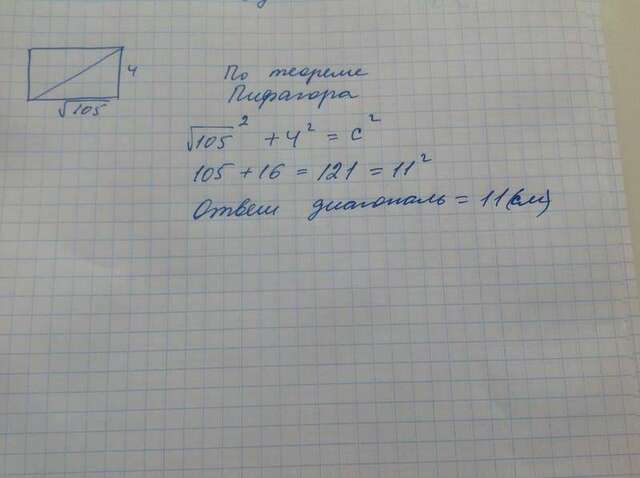 4
√105
По теореме
Пифагора
√105² + 4² = c²
105 + 16 = 121 = 11²
Ответ диагональ = 11 (см)